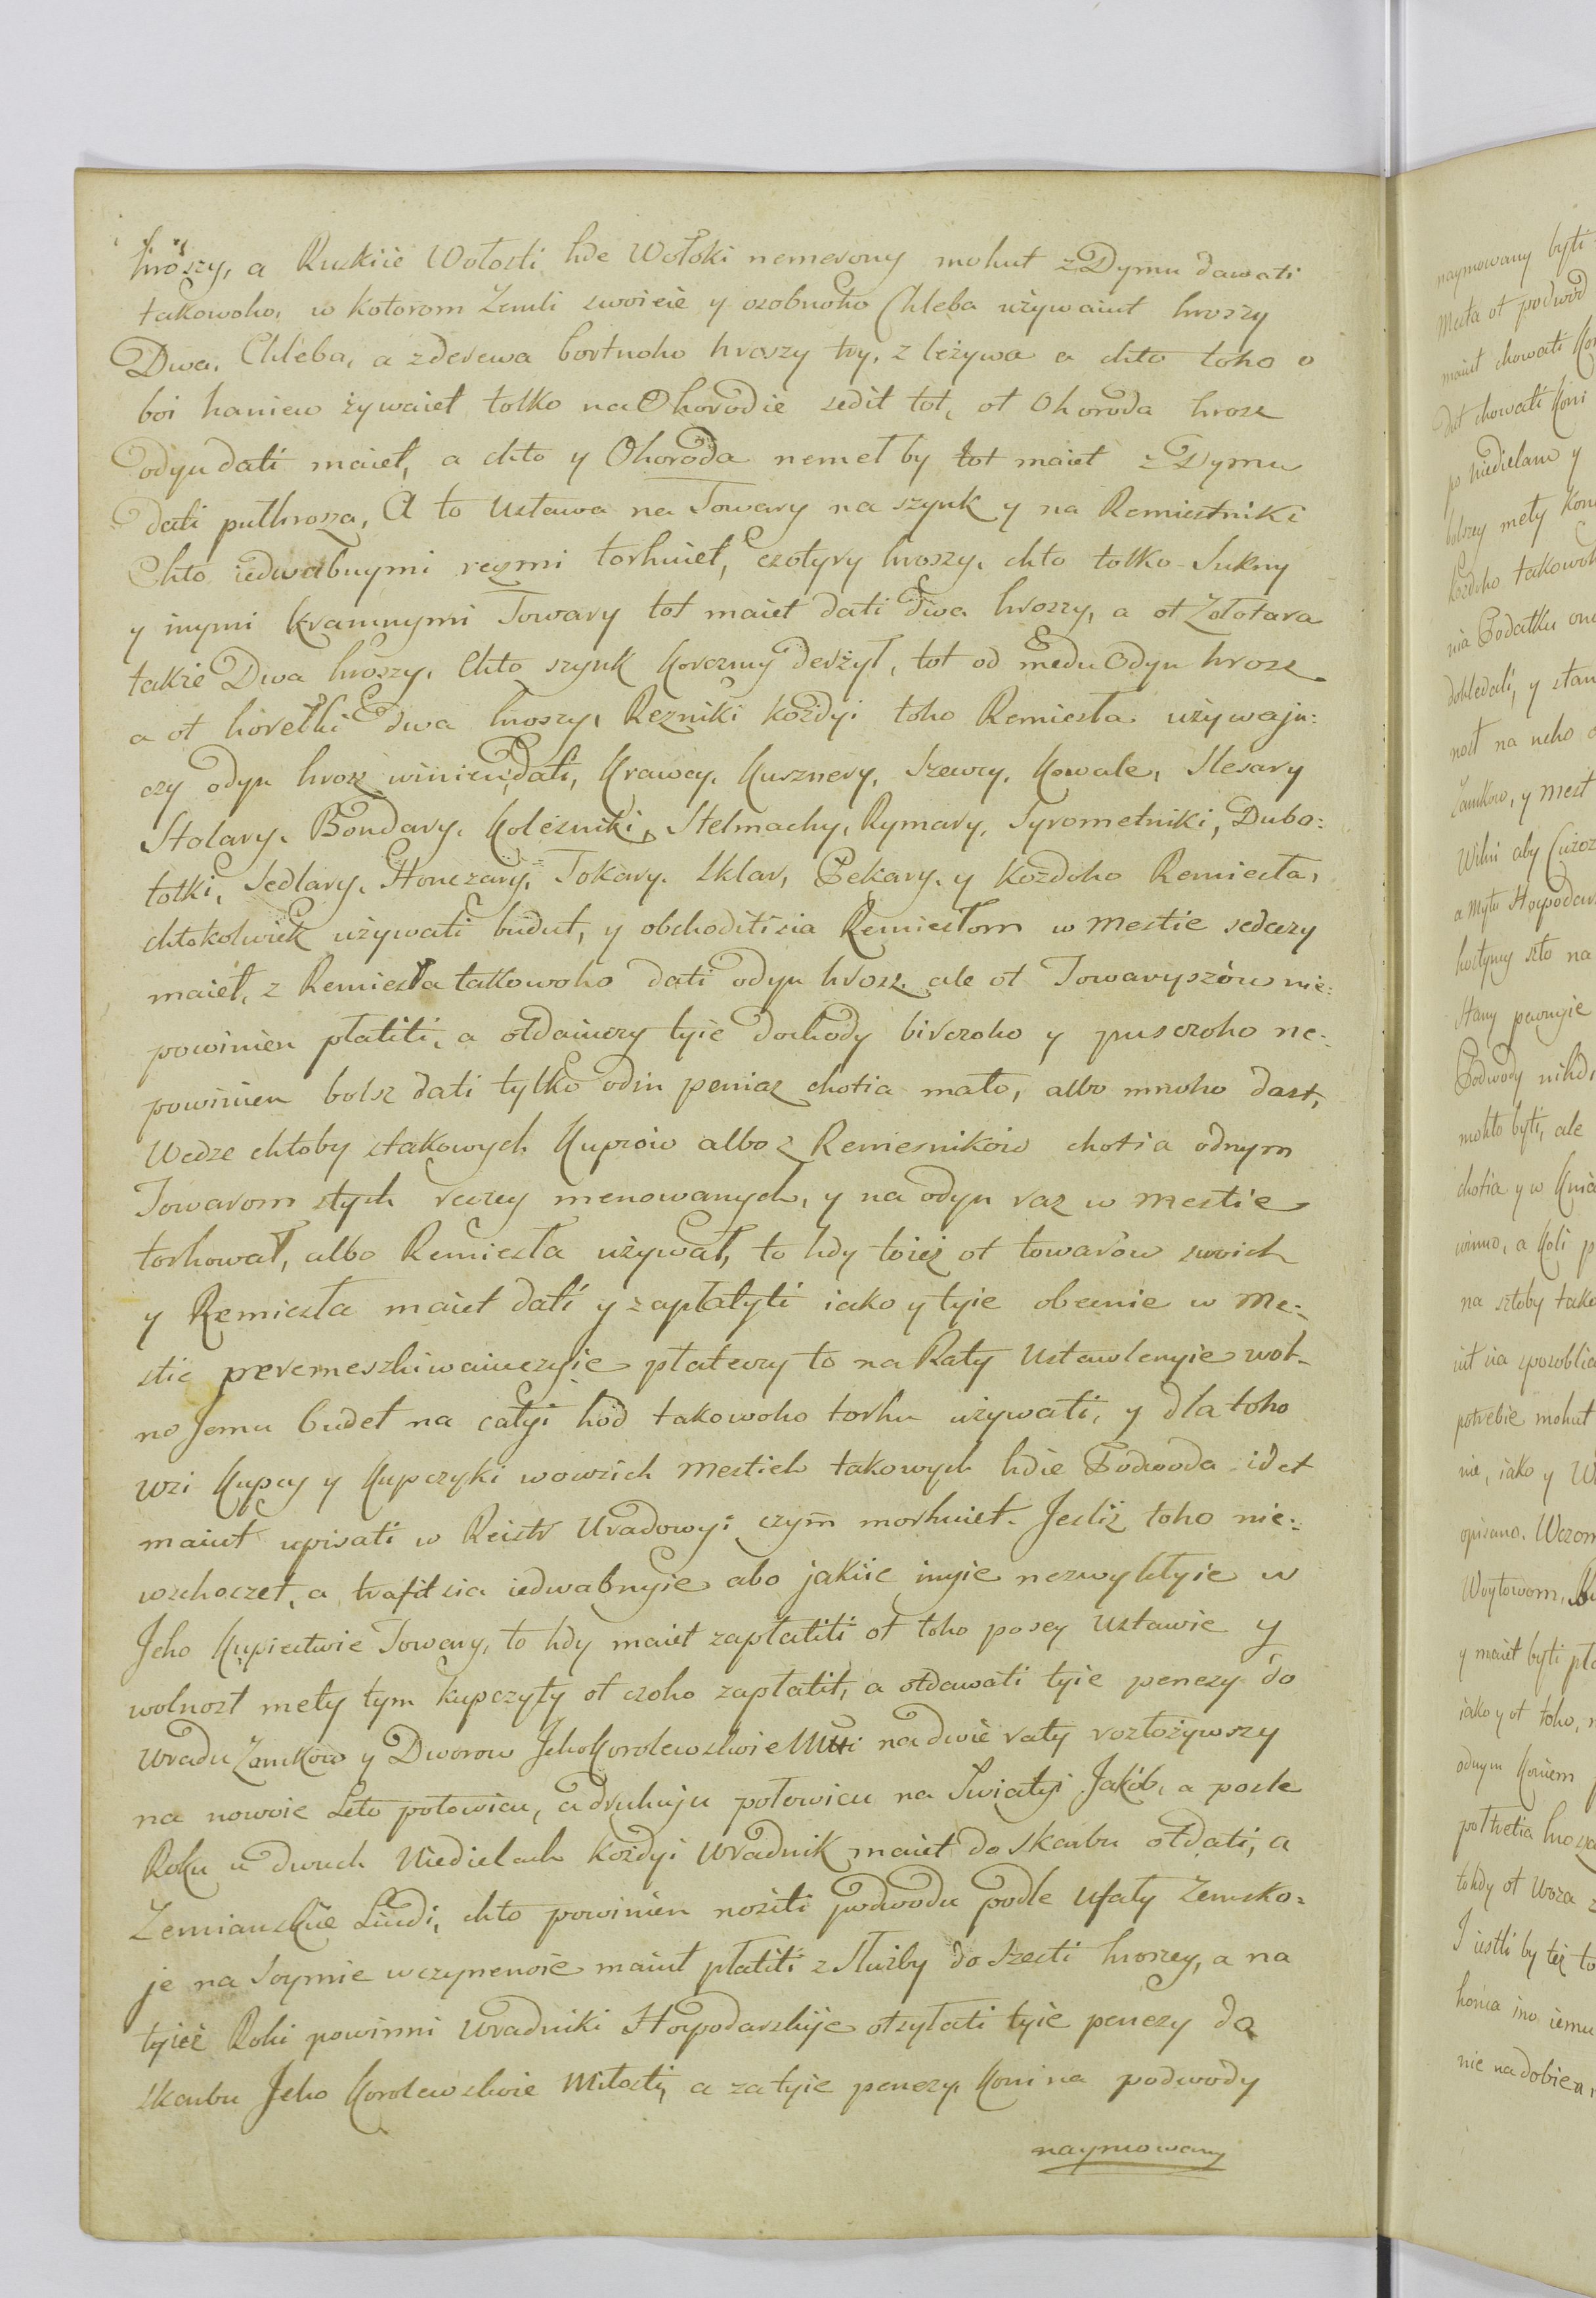 hroszy, a Ruskiie Wołosti hde Wołoki nemerony mohut z Dymu dawati
takowoho, w kotorom Zemli swoieie y osobnoho Chleba używaiut hroszy
Dwa, Chleba, a z derewa bortnoho hroszy try, z leżywa a chto toho o
boi haniew żywaiet tolko na Ohorodie sedit tot, ot Ohoroda hrosz
odyn dati maiet, a chto y Ohoroda nemet by tot maiet z Dymu
dati puthrosza, A to Ustawa na Towary na szynk y na Remiestniki
Chto iedwabnymi reczmi torhuiet, czotyry hroszy, chto tolko Sukny
y inymi kramnymi Towary tot maiet dati dwa hroszy, a ot Zołotara
także Dwa hroszy, Chto szynk Korczmy derżyt, tot od medu Odyn hrosz
a ot horełki dwa hroszy, Rezniki kożdyi toho Remiesta używaju:
czy odyn hrosz winien dati, Krawcy, Kusznery, Szewcy, Kowale, Slesary
Stolary, Bondary, Kolesniki, Stelmachy, Rymary, Syrometniki, Dubo:
totki, Sedlary, Honczary, Tokary, Sklar, Pekary, y Kożdoho Remiesta,
chtokolwiek używati budut, y obchoditisia Remiestom w Mestie sedeczy
maiet, z Remiesta takowoho dati odyn hrosz, ale ot Towaryszów nie:
powinien płatiti, a otdaiuczy tyie dochody birczoho y pusczoho ne:
powinien bolsz dati tylko odin peniaz chotia mało, albo mnoho dast,
Wedze chtoby stakowych Kupców albo z Remesników chotia odnym
Towarom stych reczey menowanych, y na odyn raz w Mestie
torhował, albo Remiesta używał, to hdy toież ot towarów swoich
y Remiesta maiet dati y zapłatyti iako y tyie obecnie w Me:
stie peremeszkiwaiuczyie płateczy to na Raty Ustawlenyie wol-
no Jemu budet na całyi hod takowoho torhu używati, y dla toho
wsi Kupcy y Kupczyki wowsich Mestich takowych hdie Podwoda idet
maiut upisati w Reistr Uradowyi czym morhuiet. Jesliż toho nie:
wschoczet, a trafitsia iedwabnyie abo jakiie inyie nezwykłyie w
Jeho Kupiectwie Towary, to hdy maiet zapłatiti ot toho posey Ustawie y
wolnost mety tym kupczyty ot czoho zapłatit, a otdawati tyie penezy do
Uradu Zamków y Dworow Jeho Korolewskoie Mti na dwie raty rozłożywszy
na nowoie Leto połowicu, a druhuju połowicu na Swiatyi Jakób, a posle
Roku u dwuch Niedielach Kożdyi Uradnik maiet do Skarbu otdati, a
Zemianskiie Liudi, chto powinien nositi podwodu podle Ufały Zemsko:
je na Soymie uczynenoie maiut płatiti z Służby do Szesti hroszey, a na
tyież Roki powinni Uradniki Hospodarskije otsyłati tyie penezy do
skarbu Jeho Korolewskoie Miłosti, a za tyie penezy, Koni na podwody
naymowany
naymowany byti
Mesta ot podwod
maiut chowati
dut chowati Koni
po Niedielam y
bolszey mety
kożdoho
nia Podatku
dohledali, y
nost na neho
Zamkow, y Mest
Wilni aby
a Myto
hostynny sto na
Stany pewnyie
Podwody
mohło byti, ale
chotia y w
winno, a Koli
na sztoby
iut sia
potrebie mohut
nie, iako y
opisano.
Woytowom,
y maiet byti
iako y ot toho,
odnym Koniem
połtretia
tohdy ot Woza
I iestli by też to
konia ino iemu
nie nadobien